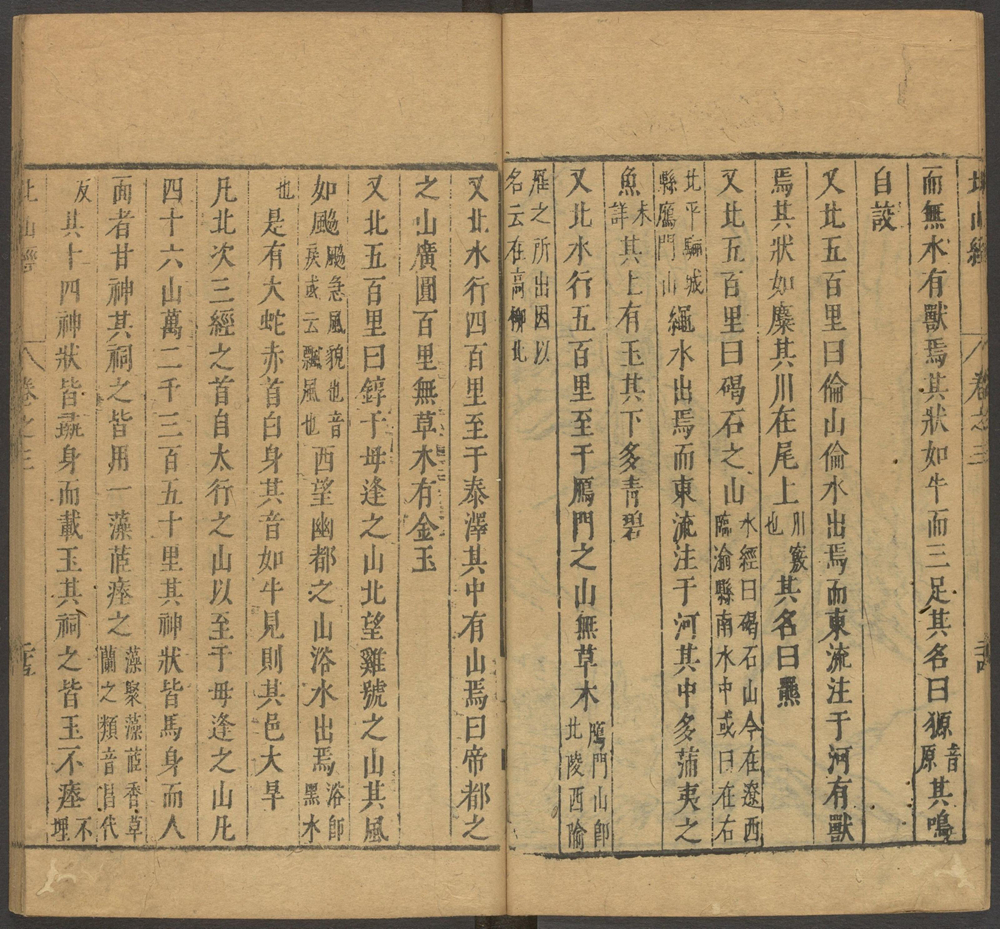 北山經 卷之三
而無水有獸焉其狀如牛而三足其名曰獂音原其鳴
自詨
又北五百里曰倫山倫水出焉而東流注于河有獸
焉其狀如麋其川在尾上川竅也其名曰羆
又北五百里曰碣石之山水經曰碣石山今在遼西臨渝縣南水中或曰在右
北平驪城縣鴈門山繩水出焉而東流注于河其中多蒲夷之
魚未詳其上有玉其下多青碧
又北水行五百里至于鴈門之山無草木鴈門山卽北陵西隃
雁之所出因以名云在高柳北
又北水行四百里至于泰澤其中有山焉曰帝都之
之山廣圓百里無草木有金玉
又北五百里曰錞于毋逢之山北望雞號之山其風
如飈飈急風貌也音戾或云飄風也西望幽都之山浴水出焉浴卽黑水
也是有大蛇赤首白身其音如牛見則其邑大旱
凡北次三經之首自太行之山以至于毋逢之山凡
四十六山萬二千三百五十里其神狀皆馬身而人
面者廿神其祠之皆用一藻茝瘞之藻聚藻茝香草蘭之類音昌代
反其十四神狀皆彘身而載玉其祠之皆玉不瘞不埋
北山經 卷之三